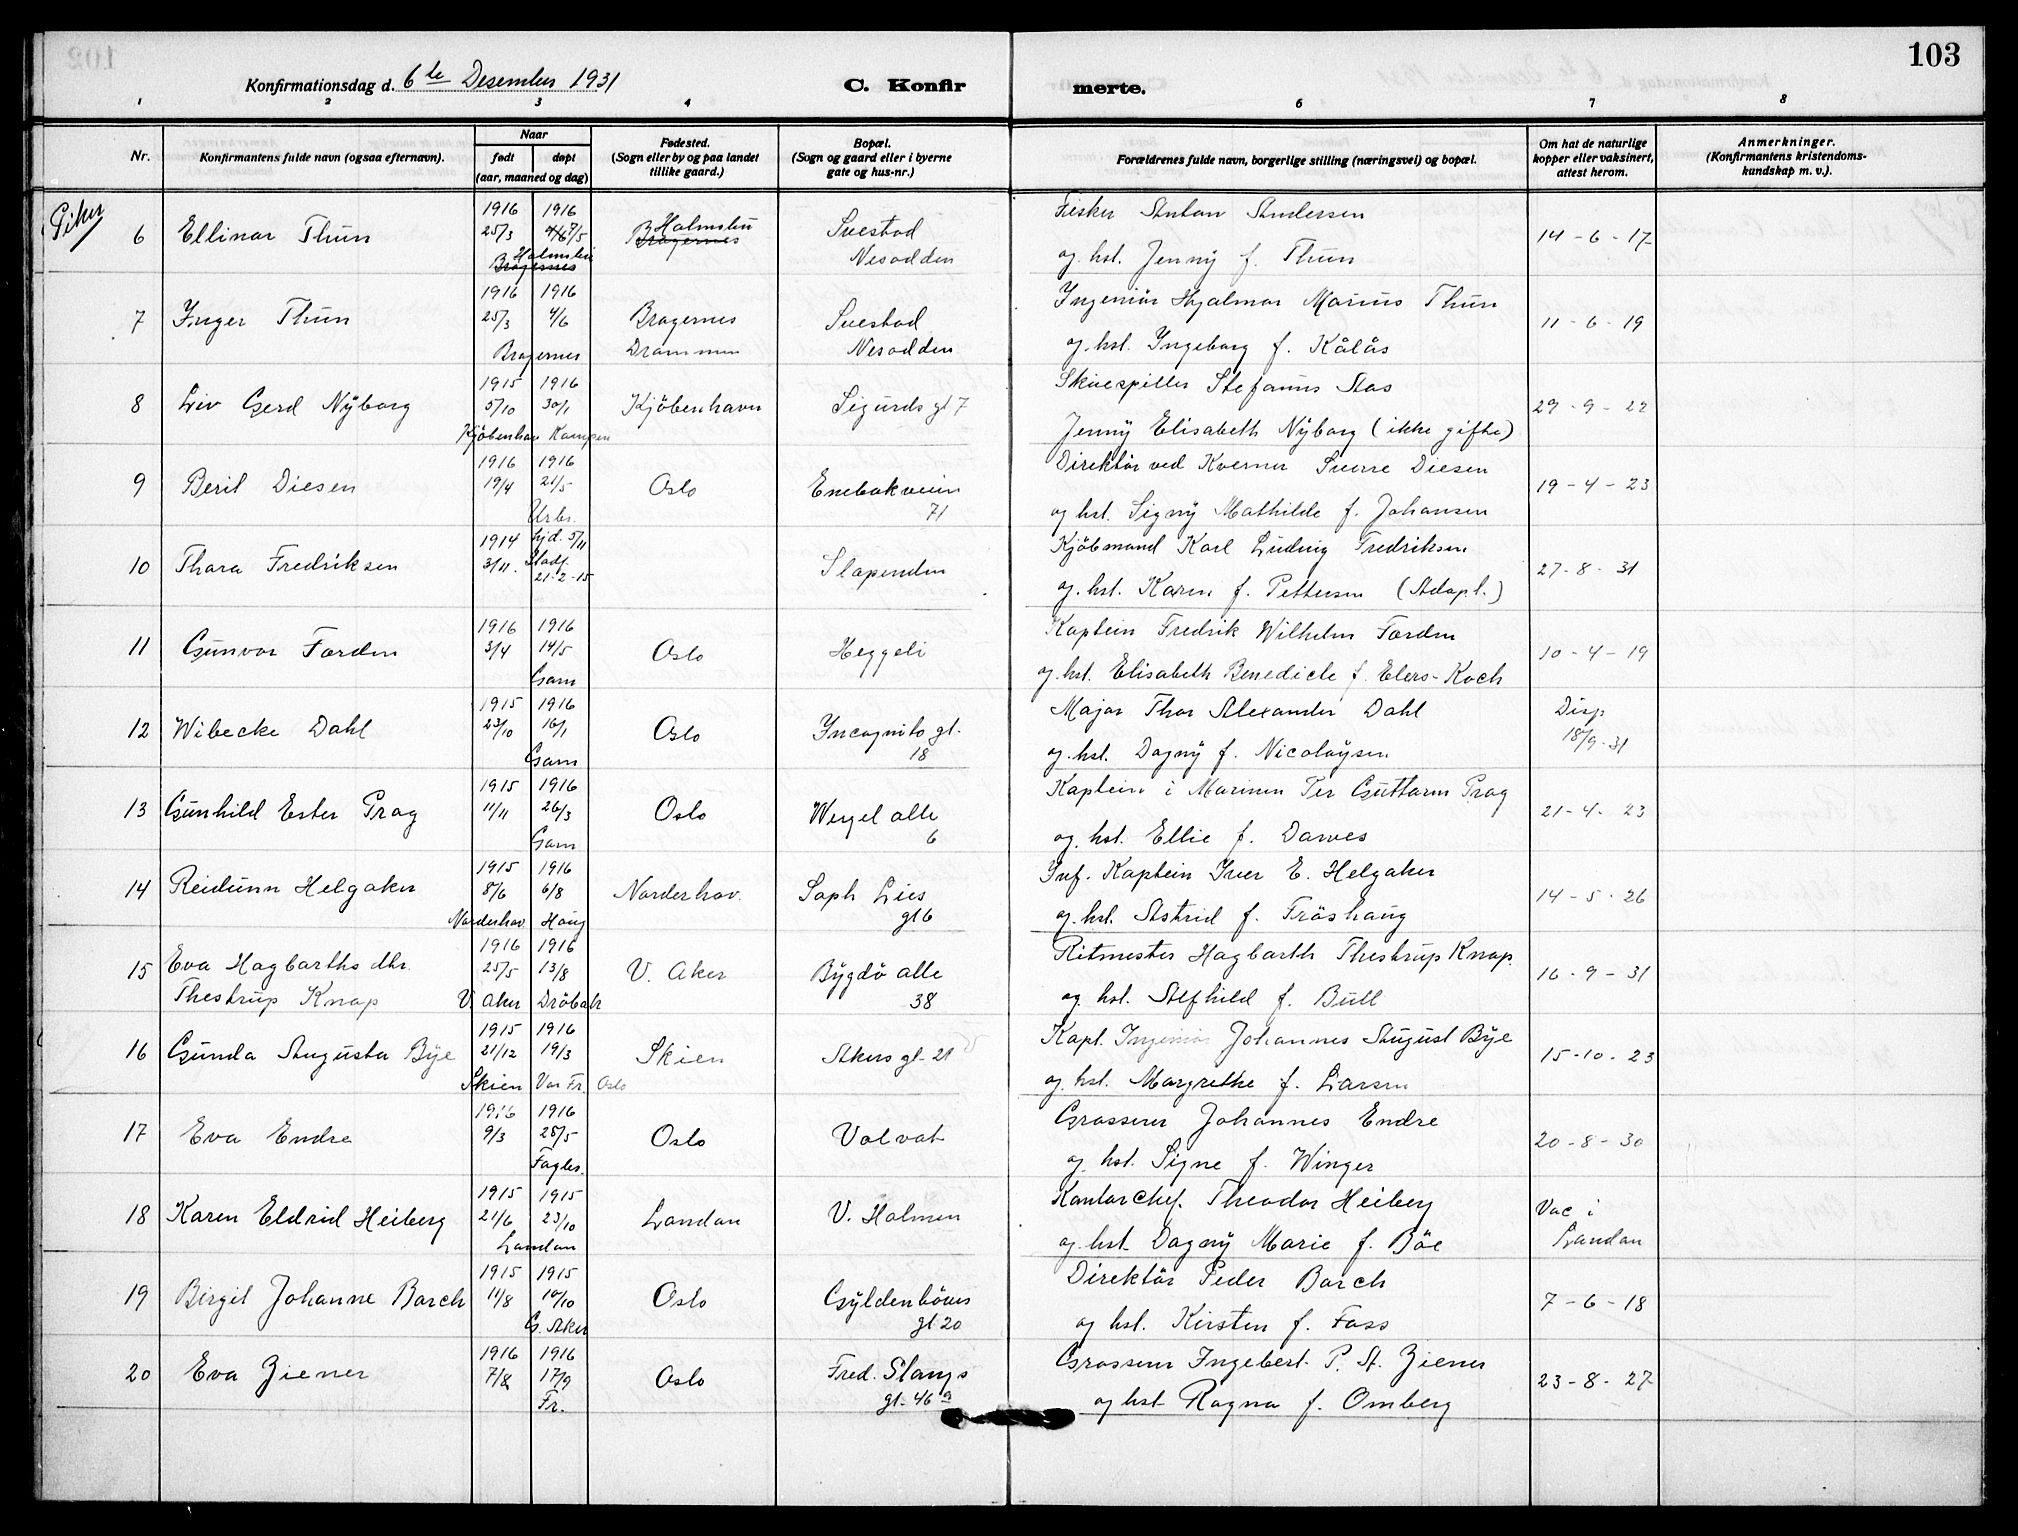 103
Konfirmationsdag d. 6te Desember 1931 C. Konfirmerte.
1 2 3 4 6 7 8
Nr. Konfirmantens fulde navn (ogsaa efternavn). Naar født døpt (aar, maaned og dag) Fødested. (Sogn eller by og paa landet tillike gaard.) Bopæl. (Sogn og gaard eller i byerne gate og hus-nr.) Forældrenes fulde navn, borgerlige stilling (næringsvei) og bopæl. Om hat de naturlige kopper eller vaksinert, attest herom. Anmerkninger. (Konfirmantens kristendomskundskap m. v.).
Piker
6 Ellinor Thun 1916 25/3 1916 7/5 Holmsbu Bragernes Holmsbu Bragernes Svestad Nesodden Fisker Anton Andersen 14-6-17
og hst. Jenny f. Thun
7 Inger Thun 1916 25/3 1916 4/6 Bragernes Bragernes Drammen Svestad Nesodden Ingeniør Hjalmar Marius Thun 11-6-19
og hst. Ingeborg f. Kålås
8 Liv Gerd Nyborg 1915 5/10 1916 30/1 Kjöbenhavn Kampen Kjöbenhavn Sigurds gt 7 Skuespiller Stefanus Aas 29-9-22
Jenny Elisabeth Nyborg (ikke gifte)
9 Beril Diesen 1916 19/4 1916 21/5 Urbr. Oslo Enebakveien 71 Direktör ved Kverner Sverre Diesen 19-4-23
og hst. Signy Mathilde f. Johansen
10 Thora Fredriksen 1914 3/11. hjd. 5/11 Stadf. 21-2-15 Slependen Kjöbmand Karl Ludvig Fredriksen 27-8-31
og hst. Karen f. Pettersen (Adopt.)
11 Gunvor Forden 1916 3/4 1916 14/5 Gam Oslo Heggeli Kaptein Fredrik Wilhelm Forden 10-4-19
og hst. Elisabeth Benedicte f. Elers-Koch
12 Wibecke Dahl 1915 23/10 1916 16/1 Gam Oslo Incognito gt. 18 Major Thor Alexander Dahl Disp 18/9-31
og hst. Dagny f. Nicolaysen
13 Gunhild Ester Prag 1915 11/11 1916 26/3 Gam Oslo Wergel alle 6 Kaptein i Marinen Per Guttorm Prag 21-4-23
og hst. Ellie f. Dawes
14 Reidunn Helgaker 1915 8/6 1916 6/8 Norderhov Haug Norderhov. Soph Lies gt 6 Inf. Kaptein Iver E. Helgaker 14-5-26
og hst. Astrid f. Fröshaug
15 Eva Hagbarths dtr. Thestrup Knap 1916 25/5 1916 13/8 V. Aker Dröbak V. Aker Bygdö alle 38 Ritmester Hagbarth Thestrup Knap. 16-9-31
og hst. Alfhild f. Bull
16 Gunda Augusta Bye 1915 21/12 1916 19/3 Skien Vor Fr. Oslo Skien Akers gt. 21 Kapt. Ingeniör Johannes August Bye 15-10-23
og hst. Margrethe f. Larsen
17 Eva Endre 1916 9/3 1916 28/5 Fagbr. Oslo Volvat Grosserer Johannes Endre 20-8-30
og hst. Signe f. Winger
18 Karen Eldrid Heiberg 1915 21/6 1915 23/10 London London V. Holmen Kontorchef. Theodor Heiberg Vac i London
og hst. Dagny Marie f. Böe
19 Birgit Johanne Borch 1915 11/8 1915 10/10 G. Aker Oslo Gyldenlöves gt 20 Direktör Peder Borch 7-6-18
og hst. Kirsten f. Foss
20 Eva Ziener 1916 7/8 1916 17/9 Fr. Oslo Fred. Stangs gt. 46a Grosserer Ingebert P. A. Ziener 23-8-27
og hst Ragna f. Omberg